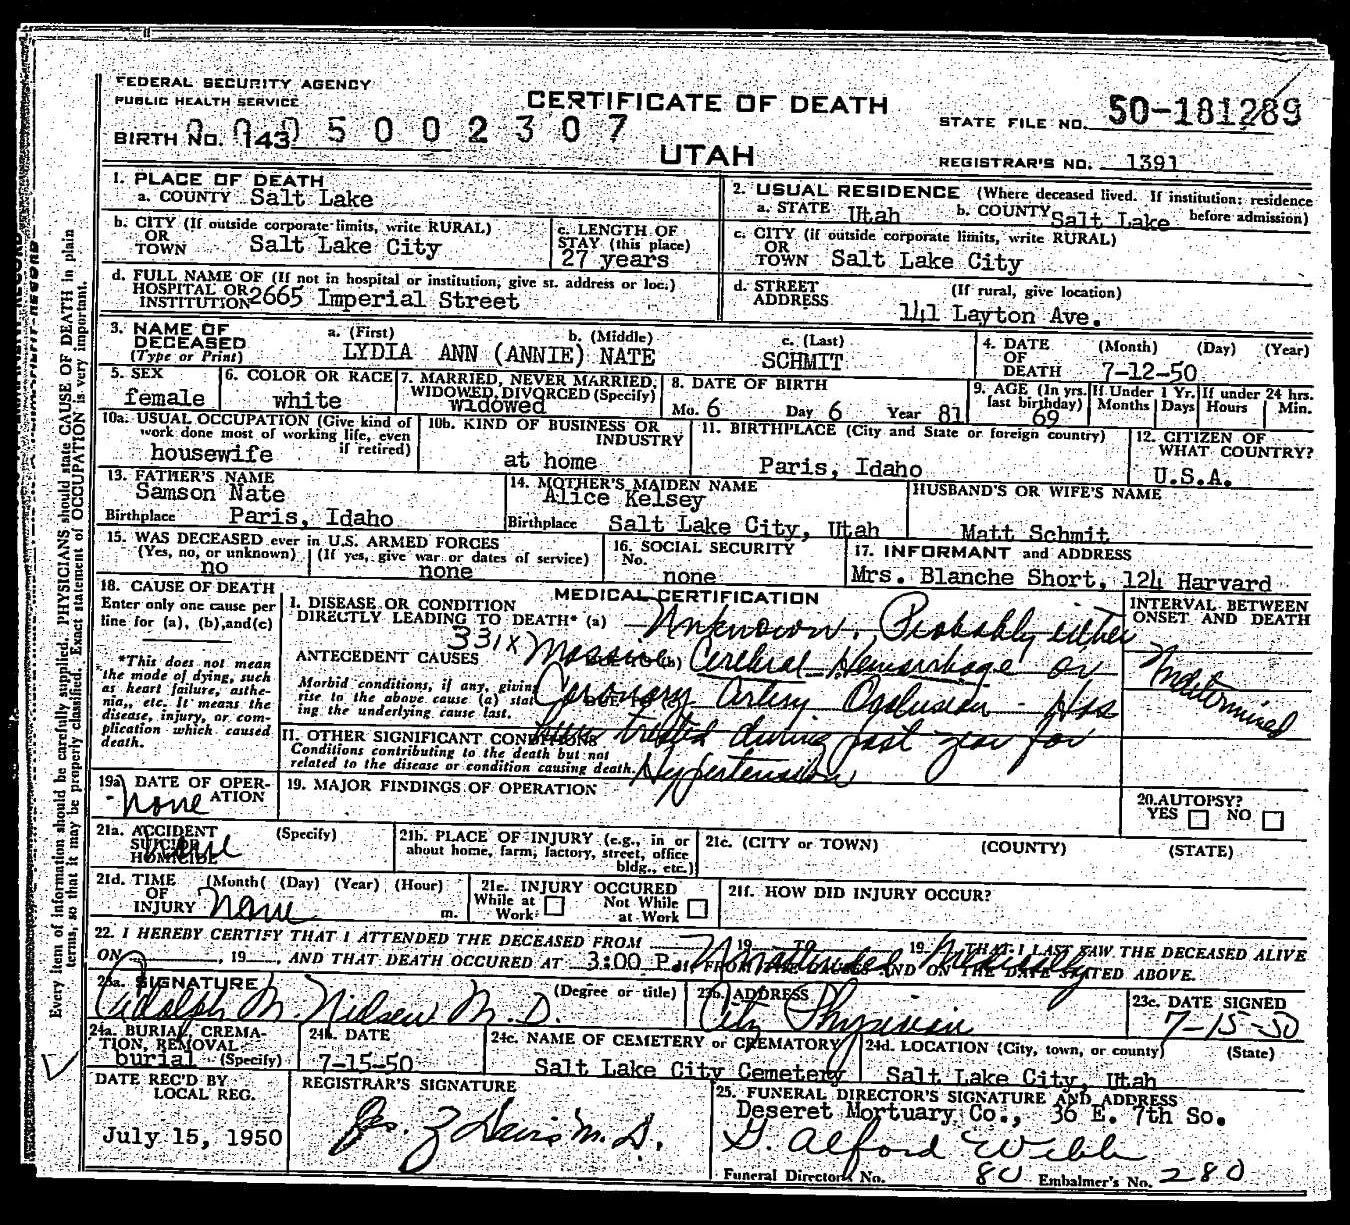 FEDERAL SECURITY AGENCY
PUBLIC HEALTH SERVICE
CERTIFICATE OF DEATH
STATE FILE NO. 50-181289
BIRTH NO. 143
0005002307
UTAH
REGISTRAR'S NO. 1391
1. PLACE OF DEATH
a. COUNTY Salt Lake
2. USUAL RESIDENCE (Where deceased lived. If institution: residence before admission)
a. STATE Utah b. COUNTY Salt Lake
b. CITY (If outside corporate limits, write RURAL)
OR
TOWN Salt Lake City
c. LENGTH OF
STAY (this place)
27 years
c. CITY (if outside corporate limits, write RURAL)
OR
TOWN Salt Lake City
d. FULL NAME OF (If not in hospital or institution, give st. address or loc.)
HOSPITAL OR
INSTITUTION 2665 Imperial Street
d. STREET (If rural, give location)
ADDRESS
141 Layton Ave.
3. NAME OF
DECEASED
(Type or Print)
a. (First) b. (Middle) c. (Last)
LYDIA ANN (ANNIE) NATE SCHMIT
4. DATE (Month) (Day) (Year)
OF
DEATH 7-12-50
5. SEX
female
6. COLOR OR RACE
white
7. MARRIED, NEVER MARRIED,
WIDOWED, DIVORCED (Specify)
widowed
8. DATE OF BIRTH
Mo. 6 Day 6 Year 81
9. AGE (In yrs.
last birthday)
69
If Under 1 Yr.
Months Days
If under 24 hrs.
Hours Min.
10a. USUAL OCCUPATION (Give kind of
work done most of working life, even
if retired)
housewife
10b. KIND OF BUSINESS OR
INDUSTRY
at home
11. BIRTHPLACE (City and State or foreign country)
Paris, Idaho
12. CITIZEN OF
WHAT COUNTRY?
U.S.A.
13. FATHER'S NAME
Samson Nate
Birthplace Paris, Idaho
14. MOTHER'S MAIDEN NAME
Alice Kelsey
Birthplace Salt Lake City, Utah
HUSBAND'S OR WIFE'S NAME
Matt Schmit
15. WAS DECEASED ever in U.S. ARMED FORCES
(Yes, no, or unknown) (If yes, give war or dates of service)
no none
16. SOCIAL SECURITY
No.
none
17. INFORMANT and ADDRESS
Mrs. Blanche Short, 124 Harvard
18. CAUSE OF DEATH
Enter only one cause per
line for (a), (b), and (c)
*This does not mean
the mode of dying, such
as heart failure, asthe-
nia, etc. It means the
disease, injury, or com-
plication which caused
death.
MEDICAL CERTIFICATION
I. DISEASE OR CONDITION
DIRECTLY LEADING TO DEATH* (a) Unknown. Probably either
331X
ANTECEDENT CAUSES Massive Cerebral Hemorrhage or
Morbid conditions, if any, giving
rise to the above cause (a) stat-
ing the underlying cause last.
Coronary Artery Occlusion - Has
II. OTHER SIGNIFICANT CONDITIONS
Conditions contributing to the death but not
related to the disease or condition causing death.
been treated during past year for
Hypertension
INTERVAL BETWEEN
ONSET AND DEATH
Undetermined
19a. DATE OF OPER-
ATION
none
19. MAJOR FINDINGS OF OPERATION
20. AUTOPSY?
YES NO
21a. ACCIDENT (Specify)
SUICIDE
HOMICIDE
21b. PLACE OF INJURY (e.g., in or
about home, farm, factory, street, office
bldg., etc.)
21c. (CITY or TOWN) (COUNTY) (STATE)
21d. TIME (Month) (Day) (Year) (Hour)
OF
INJURY none m.
21e. INJURY OCCURED
While at Not While
Work at Work
21f. HOW DID INJURY OCCUR?
22. I HEREBY CERTIFY THAT I ATTENDED THE DECEASED FROM 19 TO 19 THAT I LAST SAW THE DECEASED ALIVE
ON , 19 , AND THAT DEATH OCCURED AT 3:00 P.m FROM THE CAUSES AND ON THE DATE STATED ABOVE.
23a. SIGNATURE (Degree or title)
M. D.
23b. ADDRESS
City Physician
23c. DATE SIGNED
7-15-50
24a. BURIAL, CREMA-
TION, REMOVAL
burial (Specify)
24b. DATE
7-15-50
24c. NAME OF CEMETERY or CREMATORY
Salt Lake City Cemetery
24d. LOCATION (City, town, or county) (State)
Salt Lake City, Utah
DATE REC'D BY
LOCAL REG.
July 15, 1950
REGISTRAR'S SIGNATURE
25. FUNERAL DIRECTOR'S SIGNATURE AND ADDRESS
Deseret Mortuary Co., 36 E. 7th So.
G. Alford Webb
Funeral Directors No. 80 Embalmer's No. 280
Every item of information should be carefully supplied. PHYSICIANS should state CAUSE OF DEATH in plain
terms, so that it may be properly classified. Exact statement of OCCUPATION is very important.